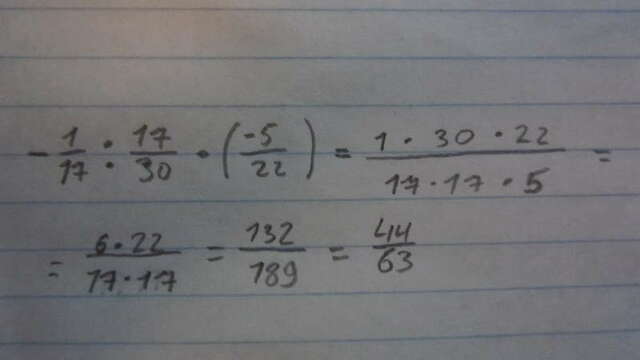 - 1/17 : 17/30 · (-5/22) = (1 · 30 · 22)/(17 · 17 · 5) =
= (6 · 22)/(17 · 17) = 132/189 = 44/63